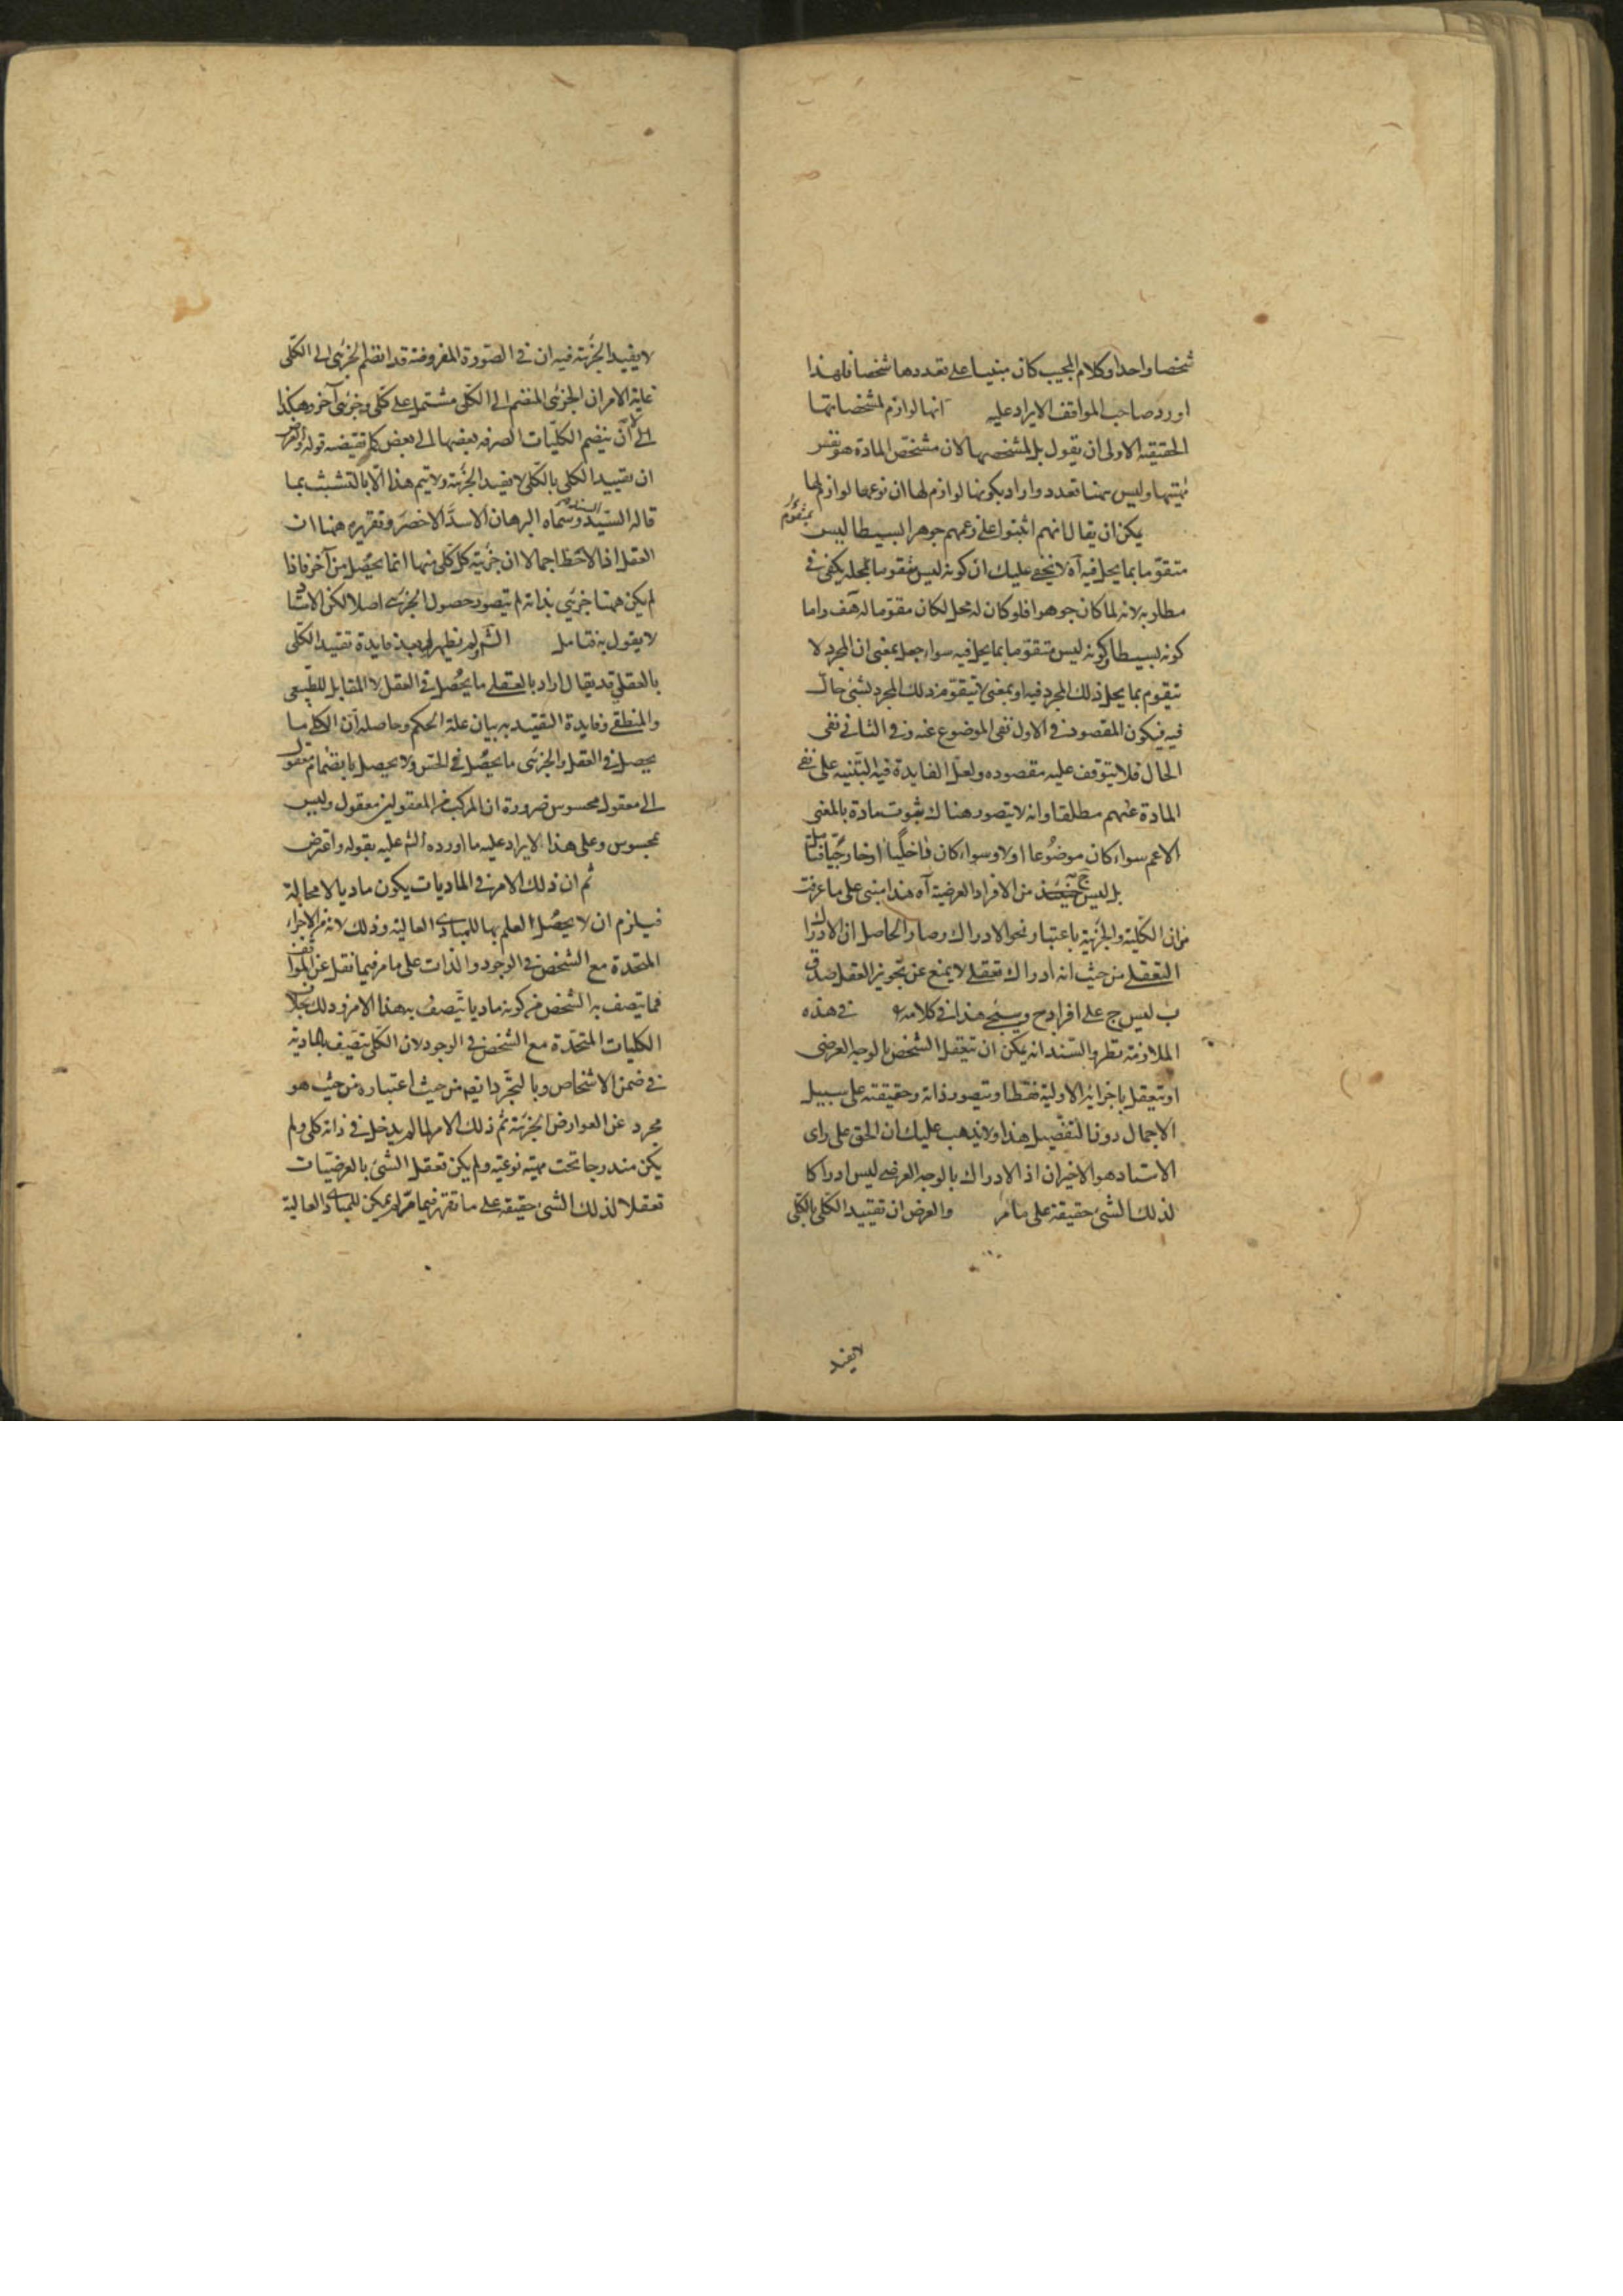 شخصا واحدا وكلام المجيب كان مبنيا على تعددها شخصا فلهذا
اورد صاحب المواقف الايراد عليه انها لوازم لمشخصاتها
الحقيقة الاولى ان يقول بل لمشخصها لان مشخص المادة هو نفس
مهيتها وليس ههنا تعدد واراد بكونها لوازم لها ان نوعها لوازم لها
يمكن ان يقال انهم اثبتوا على زعمهم جوهرا بسيطا ليس بمتقوم
متقوما بما يحل فيه آه لا يخفى عليك ان كونه ليس متقوما لمحله يكفي في
مطلوبه لانه لما كان جوهرا فلو كان له محل لكان مقوما له هف واما
كونه بسيطا وكونه ليس متقوما بما يحل فيه سواء جعل بمعنى ان المجرد لا
يتقوم بما يحل ذلك المجرد فيه او بمعنى لا يتقوم ذلك المجرد بشئ حال
فيه فيكون المقصود في الاول نفى الموضوع عنه وفي الثاني نفى
الحال فلا يتوقف عليه مقصوده ولعل الفايدة فيه التنبيه على نفي
المادة عنهم مطلقا وانه لا يتصور هناك ثبوت مادة بالمعنى
الاعم سواء كان موضوعا اولا وسواء كان داخليا او خارجيا فتامل
بل ليس ج من الافراد العرضية آه هذا مبنى على ما عرفت
من ان الكلية والجزئية باعتبار نحو الادراك وصار الحاصل ان الادراك
التعقلي من حيث انه ادراك تعقلي لا يمنع عن تجويز العقل صدق
ب ليس ج على افراد ح وسيجئ هذا في كلامه في هذه
الملازمة نظر والسند انه يمكن ان يتعقل الشخص بالوجه العرضي
او يتعقل باجزائه الاولية فقط او يتصور ذاته وحقيقته على سبيل
الاجمال دون التفصيل هذا ولا يذهب عليك ان الحق على راى
الاستاد هو الاخير ان اذ الادراك بالوجه العرضي ليس ادراكا
لذلك الشئ حقيقة على ما مر والغرض ان تقييد الكلى بالكلى
لا يفيد
لا يفيد الجزئية فيه ان في الصورة المفروضة قد انضم الجزئى الى الكلى
غاية الامر ان الجزئى المنضم الى الكلى مشتمل على كلى وجزئى آخر وهكذا
الى ان ينضم الكليات الصرفه بعضها الى بعض كما يقتضيه قوله والغرض
ان تقييد الكلى بالكلى لا يفيد الجزئية ولا يتم هذا الا بالتشبث بما
قاله السيد السند وسماه البرهان الاسد الاخصر وتقريره ههنا ان
العقل اذا لاحظ اجمالا ان جزئية كل كلى منها انما يحصل من آخر فاذا
لم يكن ههنا جزئي بذاته لم يتصور حصول الجزئى اصلا لكن الاستاد
لا يقول به فتامل الثم ولم يظهر لى بعد فايدة تقييد الكلى
بالعقلي قد يقال اراد بالعقلي ما يحصل في العقل لا المقابل للطبيعى
والمنطقي وفايدة التقييد به بيان علة الحكم وحاصله ان الكلى ما
يحصل في العقل والجزئى ما يحصل في الحس ولا يحصل بانضمام معقول
الى معقول محسوس ضرورة ان المركب من المعقولين معقول وليس
بمحسوس وعلى هذا لا يراد عليه ما اورده الثم عليه بقوله واعترض
ثم ان ذلك الامر في الماديات يكون ماديا لا محالة
فيلزم ان لا يحصل العلم بها للمبادى العالية وذلك لانه من الاجزاء
المتحدة مع الشخص في الوجود والذات على ما مر فيما نقل عن المواقف
فما يتصف به الشخص من كونه ماديا يتصف به هذا الامر وذلك بخلاف
الكليات المتحدة مع الشخص في الوجود لان الكلى يتصف بالمادية
في ضمن الاشخاص وبالتجرد ايضا من حيث اعتباره من حيث هو
مجرد عن العوارض الجزئية ثم ذلك الامر لما لم يدخل في ذاته كلى ولم
يكن مندرجا تحت مهية نوعية ولم يكن تعقل الشئ بالعرضيات
تعقلا لذلك الشئ حقيقة على ما تقرر فيما مر لم يمكن للمبادى العالية